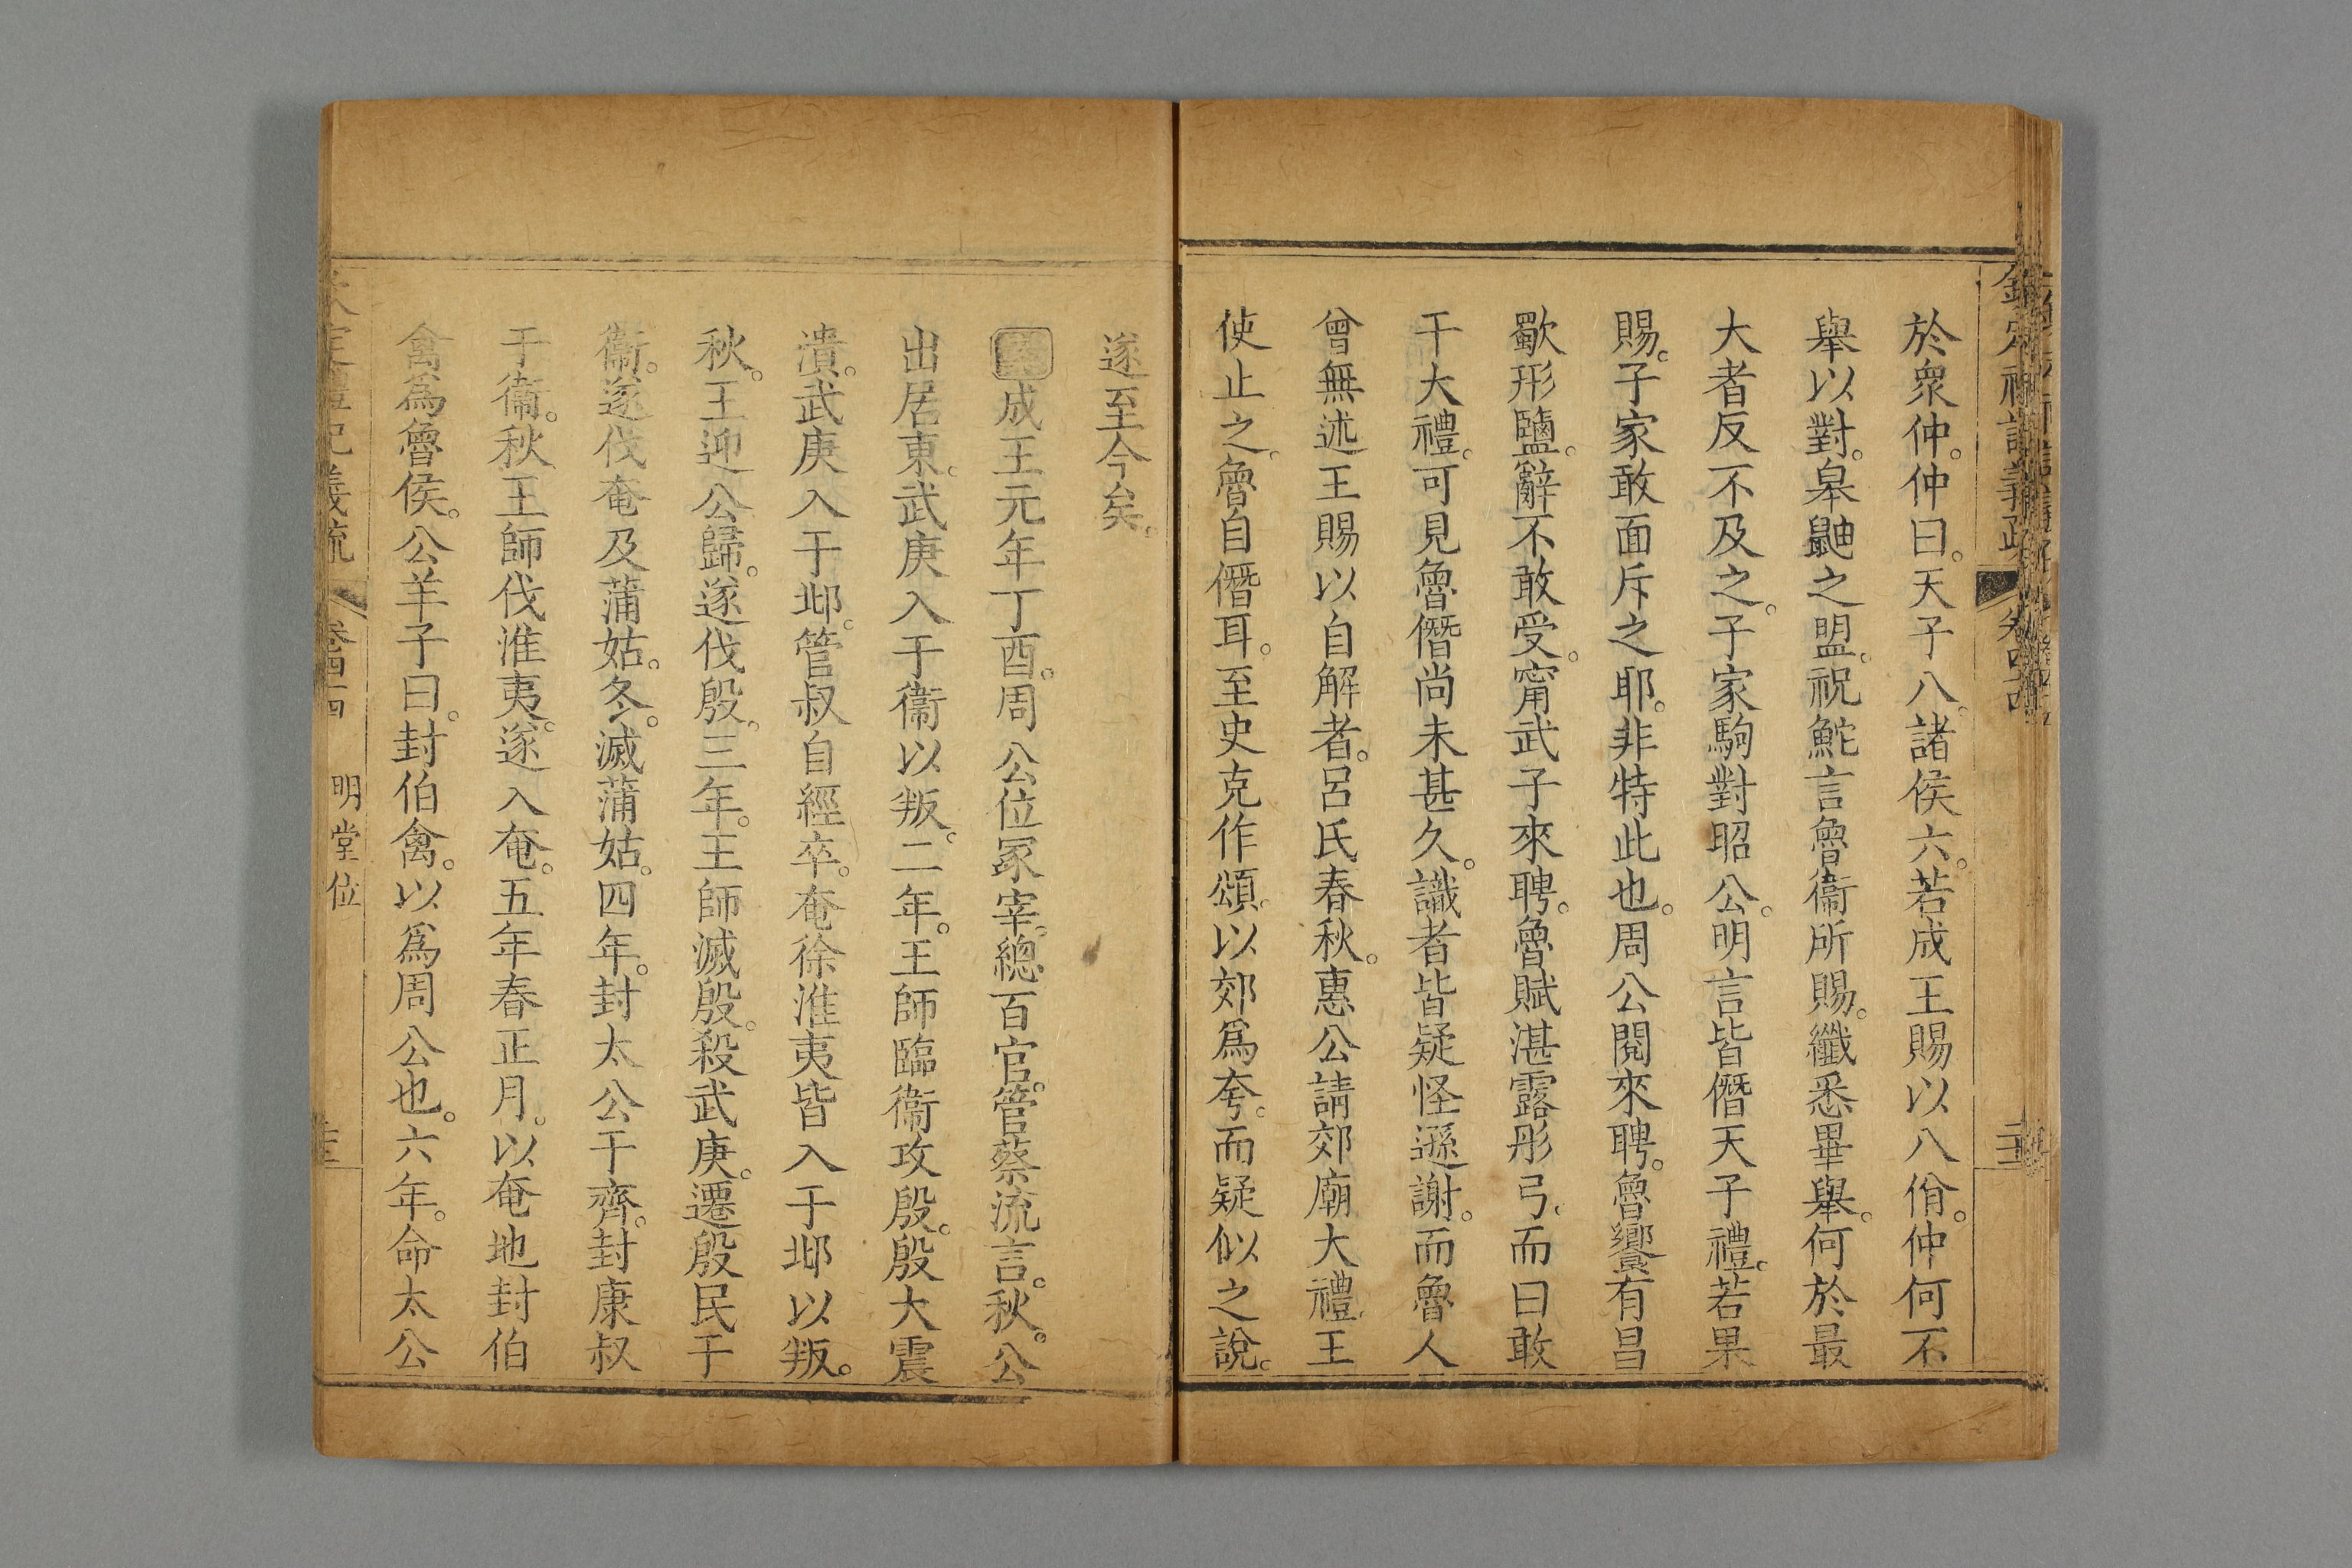 於衆仲。仲曰。天子八。諸侯六。若成王賜以八佾。仲何不
舉以對。皋鼬之盟。祝鮀言魯衞所賜。纖悉畢舉。何於最
大者反不及之。子家駒對昭公。明言皆僭天子禮。若果
賜。子家敢面斥之耶。非特此也。周公閱來聘。魯饗有昌
歜形鹽。辭不敢受。甯武子來聘。魯賦湛露彤弓。而曰敢
干大禮。可見魯僭尚未甚久。識者皆疑怪遜謝。而魯人
曾無述王賜以自解者。呂氏春秋。惠公請郊廟大禮。王
使止之。魯自僭耳。至史克作頌。以郊爲夸。而疑似之說。
遂至今矣。
成王元年丁酉。周公位冢宰。總百官。管蔡流言。秋。公
出居東。武庚入于衞以叛。二年。王師臨衞攻殷。殷大震
潰。武庚入于邶。管叔自經卒。奄徐淮夷皆入于邶以叛。
秋。王迎公歸。遂伐殷。三年。王師滅殷。殺武庚。遷殷民于
衞。遂伐奄及蒲姑。冬。滅蒲姑。四年。封太公于齊。封康叔
于衞。秋。王師伐淮夷。遂入奄。五年春正月。以奄地封伯
禽爲魯侯。公羊子曰。封伯禽。以爲周公也。六年。命太公
欽定禮記義疏 卷四十四 明堂位